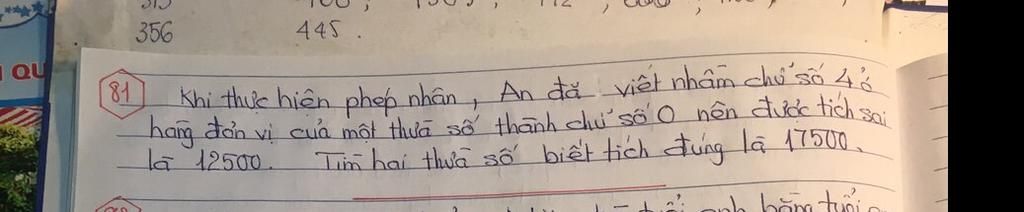 356 445.
QU
81 Khi thực hiện phép nhân, An đã viết nhầm chữ số 4 ở
hàng đơn vị của một thừa số thành chữ số 0 nên được tích sai
là 12500. Tìm hai thừa số biết tích đúng là 17500.